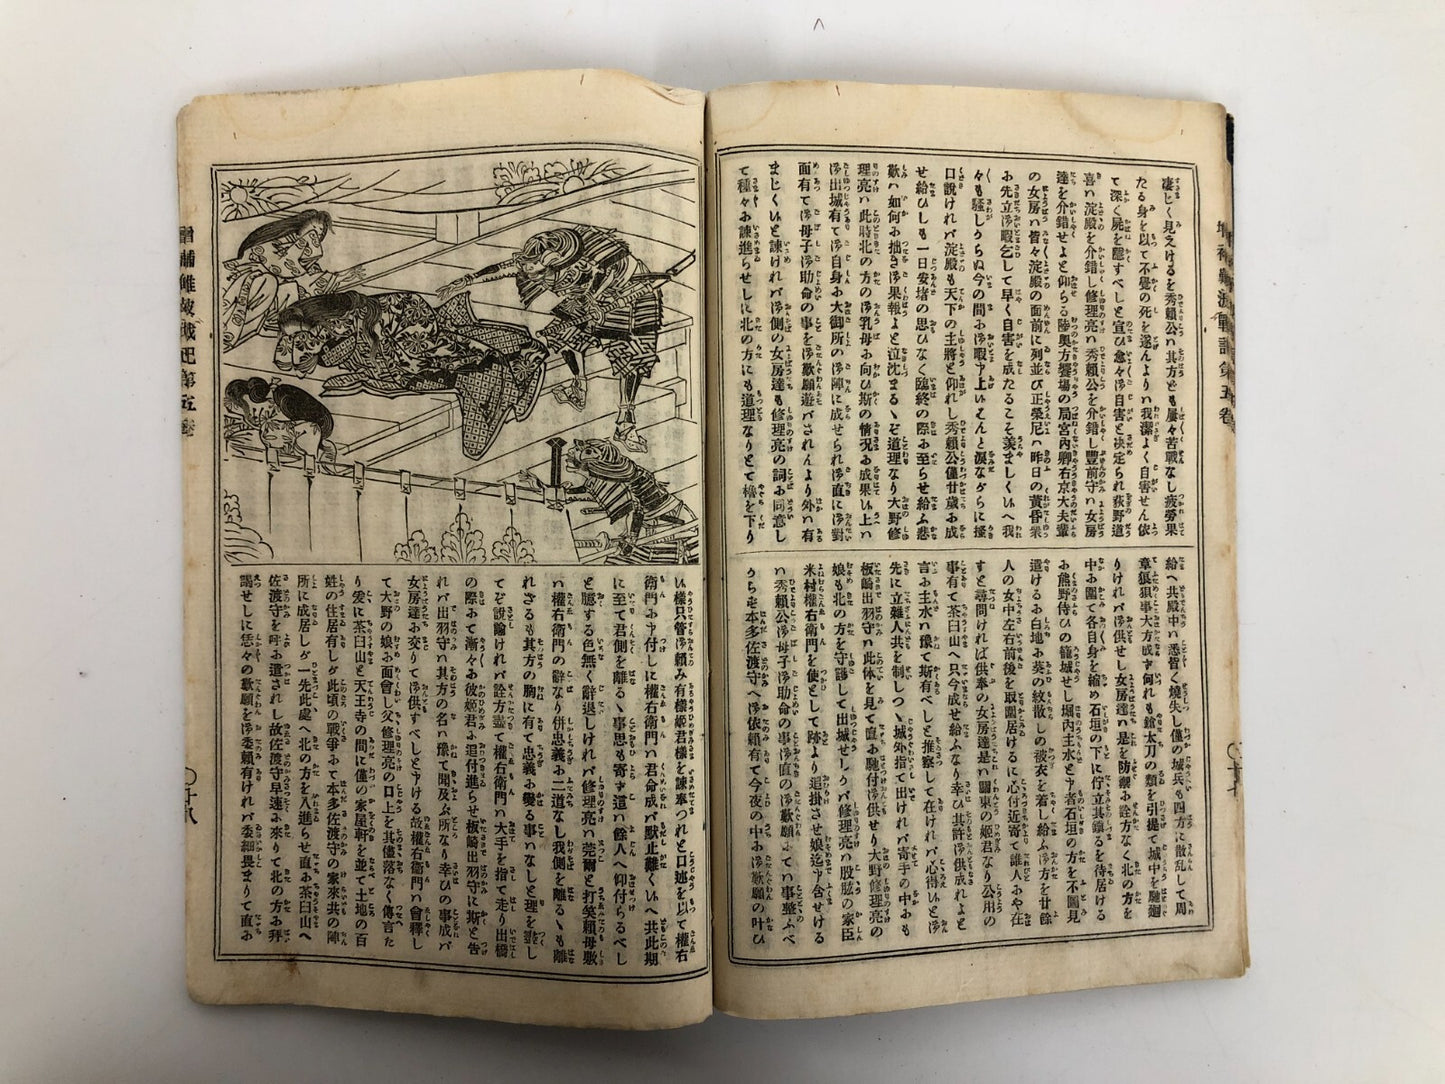 凄じく見えけるを秀頼公ハ其方とも屡々苦戦なし疲勞果
たる身を以て不覺の死を遂んよりハ我潔よく自害せん依
て深く屍を隱すべしと宣ひ愈々御自害と決定られ荻野道
喜ハ淀殿を介錯し修理亮ハ秀頼公を介錯し豐前守ハ女房
達を介錯せよと仰らる陸奥方饗塲の局宮内卿右京大夫輩
の女房ハ皆々淀殿の面前に列並び正榮尼ハ昨日の黄昏我
お先立御暇乞して早く自害を成たるこそ羨ましくいへ我
々も騷しうらぬ今の間お御暇申上いえんと涙ながらに掻
口説けれバ淀殿も天下の主將と仰れし秀頼公僅廿歳お成
せ給ひしも一日安堵の思ひなく臨終の際お至らせ給ふ悲
歎ハ如何お拙き御果報よと泣沈まるゝぞ道理なり大野修
理亮ハ此時北の方の御乳母お向ひ斯の情況お成果い上ハ
御出城有て御自身お大御所の御陣に成せられ御直に御對
面有て御母子御助命の事を御歎願遊バされんより外ハ有
まじくいと諫けれバ御側の女房達も修理亮の詞お同意し
て種々お諫進らせしに北の方にも道理なりとて櫓を下り
給へ共殿中ハ悉皆く燒失し僅の城兵も四方に散乱して周
章狼狽事大方成ず何れも鎗太刀の類を引提て城中を馳廻
りけれバ御供せし女房達ハ是を防禦お詮方なく北の方を
中お圍て各自身を縮め石垣の下に佇立其鎭るを待居ける
お熊野侍ひの籠城せし堀内主水と申者石垣の方を不圖見
遣けるお白地お葵の紋散しの被衣を着し給ふ御方を廿餘
人の女中左右前後を取圍居けるに心付近寄て誰人おや在
すと尋問ければ供奉の女房達是ハ關東の姫君なり公用の
事有て茶臼山へ只今成せ給ふなり幸ひ其許御供成れよと
言お主水ハ豫て斯有べしと推察して在けれバ心得いと御
先に立雜人共を制しつゝ城外指て出けれバ寄手の中おも
板崎出羽守ハ此体を見て直お馳付御供せり大野修理亮の
娘も北の方を守護して出城せしうバ修理亮ハ股肱の家臣
米村權右衛門を使として跡より追掛させ娘迄申含せける
ハ秀頼公御母子御助命の事御直の御歎願おてい事整ふべ
うらず本多佐渡守へ御依頼有て今夜の中お御歎願の叶ひ
い樣只管御頼み有樣姫君樣を諫奉つれと口述を以て權右
衛門お申付しに權右衛門ハ君命成バ默止難くいへ共此期
に至て君側を離るゝ事思も寄ず這ハ餘人へ仰付らるべし
と臆する色無く辭退しけれバ修理亮ハ莞爾と打笑頼母敷
ハ權右衛門の辭なり併忠義お二道なし我側を離るゝも離
れざるも其方の胸に有て忠義お變る事いなしと理を盡し
てぞ說諭けれバ詮方盡て權右衛門ハ大手を指て走り出橋
の際おて漸々お彼姫君お追付進らせ板崎出羽守に斯と告
れバ出羽守ハ其方の名ハ豫て聞及ぶ所なり幸ひの事成バ
女房達お交りて御供すべしと申ける故權右衞門ハ會釋し
て大野の娘お面會し父修理亮の口上を其儘落なく傳言た
り爰に茶臼山と天王寺の間に僅の家屋軒を並て土地の百
姓の住居有しが此頃の戰爭おて本多佐渡守の家來共の陣
所に成居しが一先此處へ北の方を八進らせ直お茶臼山へ
佐渡守を呼お遣されし故佐渡守早速お來りて北の方お拜
謁せしに恁々の歎願を御委頼有けれバ委細畏まりて直お
增補難波戰記第五卷
增補難波戰記第五卷
〇十七
〇十八